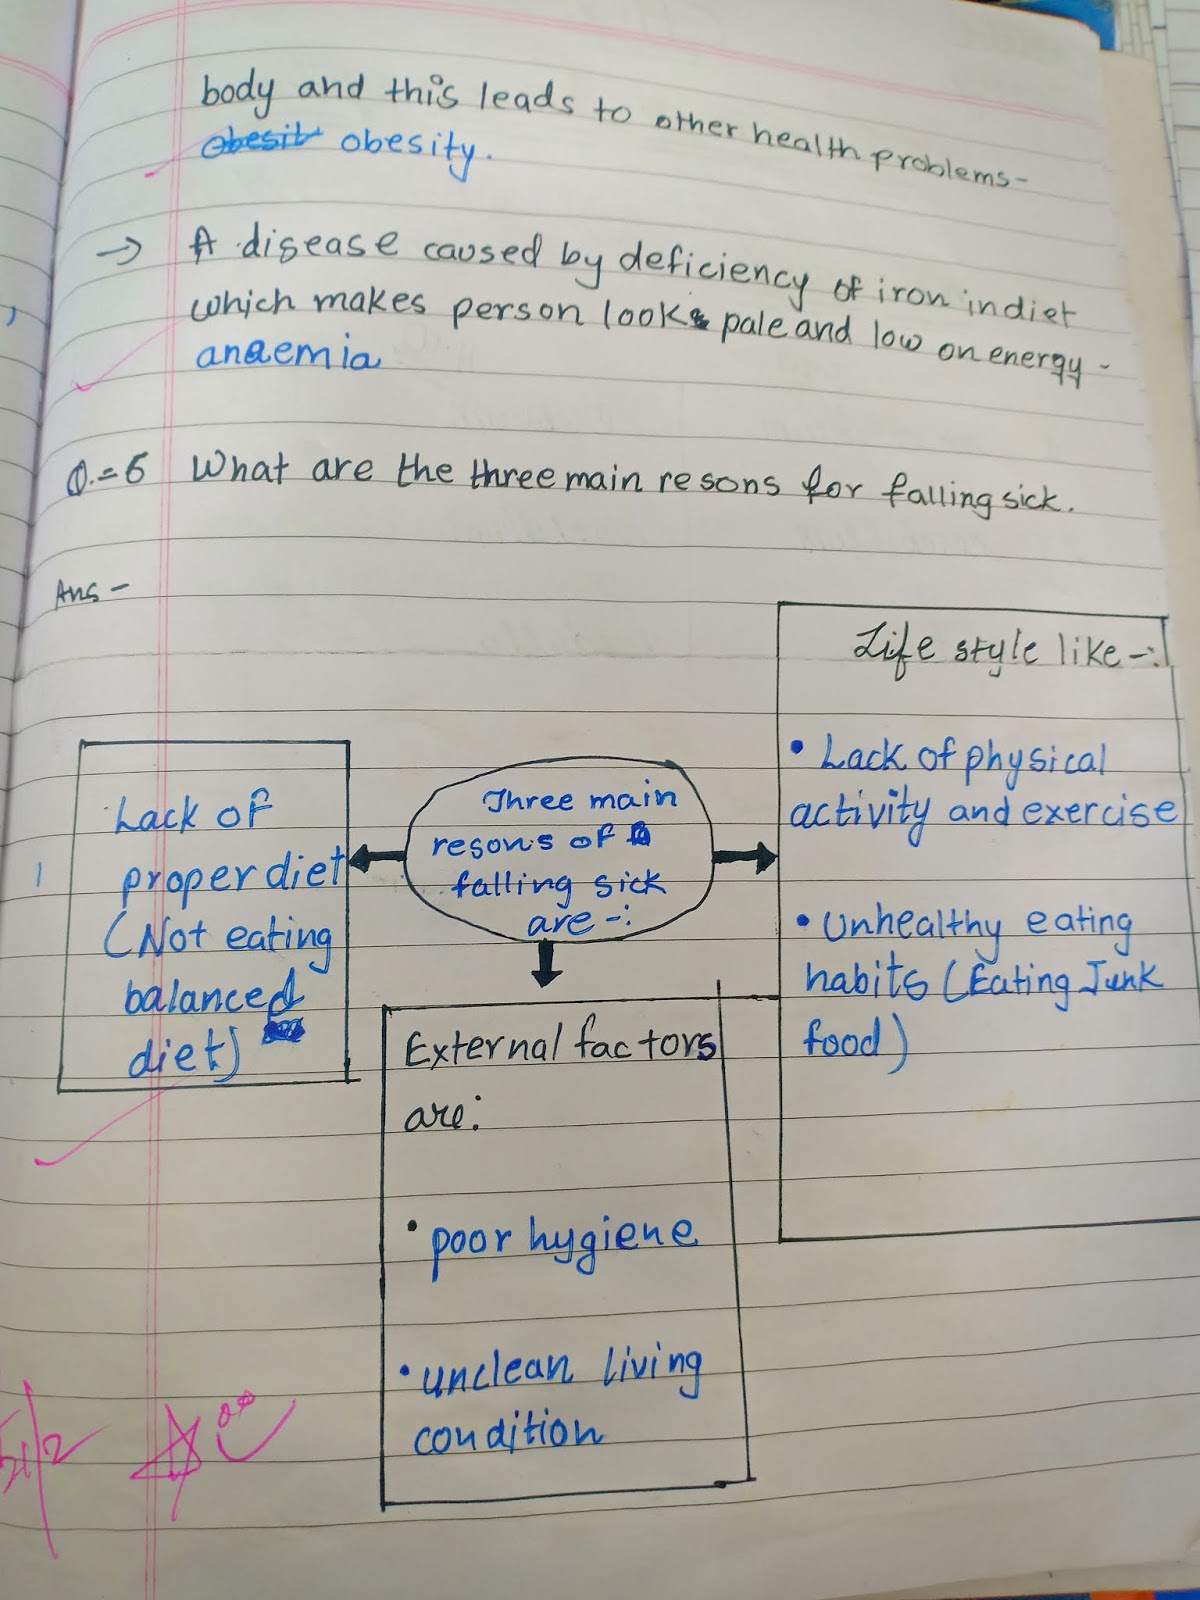 body and this leads to other health problems-
obesit obesity.
→ A disease caused by deficiency of iron in diet
which makes person look pale and low on energy -
anaemia
Q.=6 What are the three main resons for falling sick.
Ans -
Life style like-:
• Lack of physical
activity and exercise
• Unhealthy eating
habits (Eating Junk
food)
Three main
resons of
falling sick
are -:
Lack of
proper diet
(Not eating
balanced
diet)
External factors
are:
• poor hygiene
• unclean living
condition